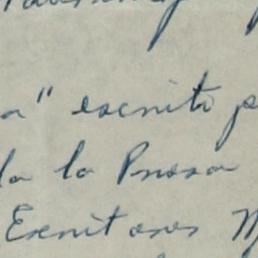 a" escrito p
la la Prosa
Escritores M